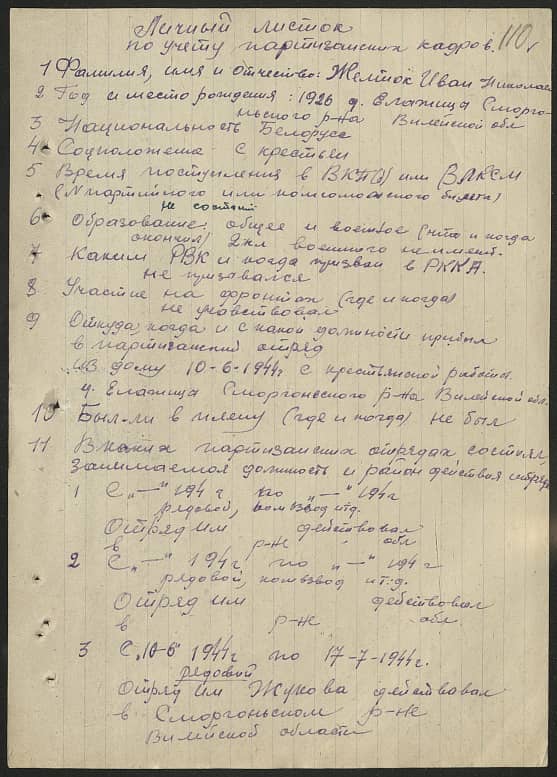 Личный листок
по учету партизанских кадров. 110
1 Фамилия, имя и отчество: Желток Иван Николае
2 Год и место рождения: 1926 д. Елажища Сморго-
ньского р-на Вилейской обл
3 Национальность Белорусс
4 Соцположение с крестьян
5 Время поступления в ВКП(б) или ВЛКСМ
(N партийного или комсомольского билета)
не состоял
6 Образование: общее и военное (что и когда
окончил) 2 кл военного не имеет.
7 Каким РВК и когда призван в РККА.
не призывался
8 Участие на фронтах (где и когда)
не учавствовал
9 Откуда, когда и с какой должности прибыл
в партизанский отряд
из дому 10-6-1944г с крестьянской работы
д. Елажища Сморгонского р-на Вилейской обл.
10 Был-ли в плену (где и когда) не был
11 В каких партизанских отрядах состоял
Занимаемая должность и район действия отряда
1 С „—" 194 г по „—" 194 г
рядовой, комвзвод итд.
Отряд им действовал
в р-не обл
2 С „—" 194 г по „—" 194 г
рядовой, комвзвод и т.д.
Отряд им действовал
в р-не обл.
3 С „10-6" 1944 г по 17-7-1944г.
рядовой
Отряд им Жукова действовал
в Сморгоньском р-не
Вилейской области